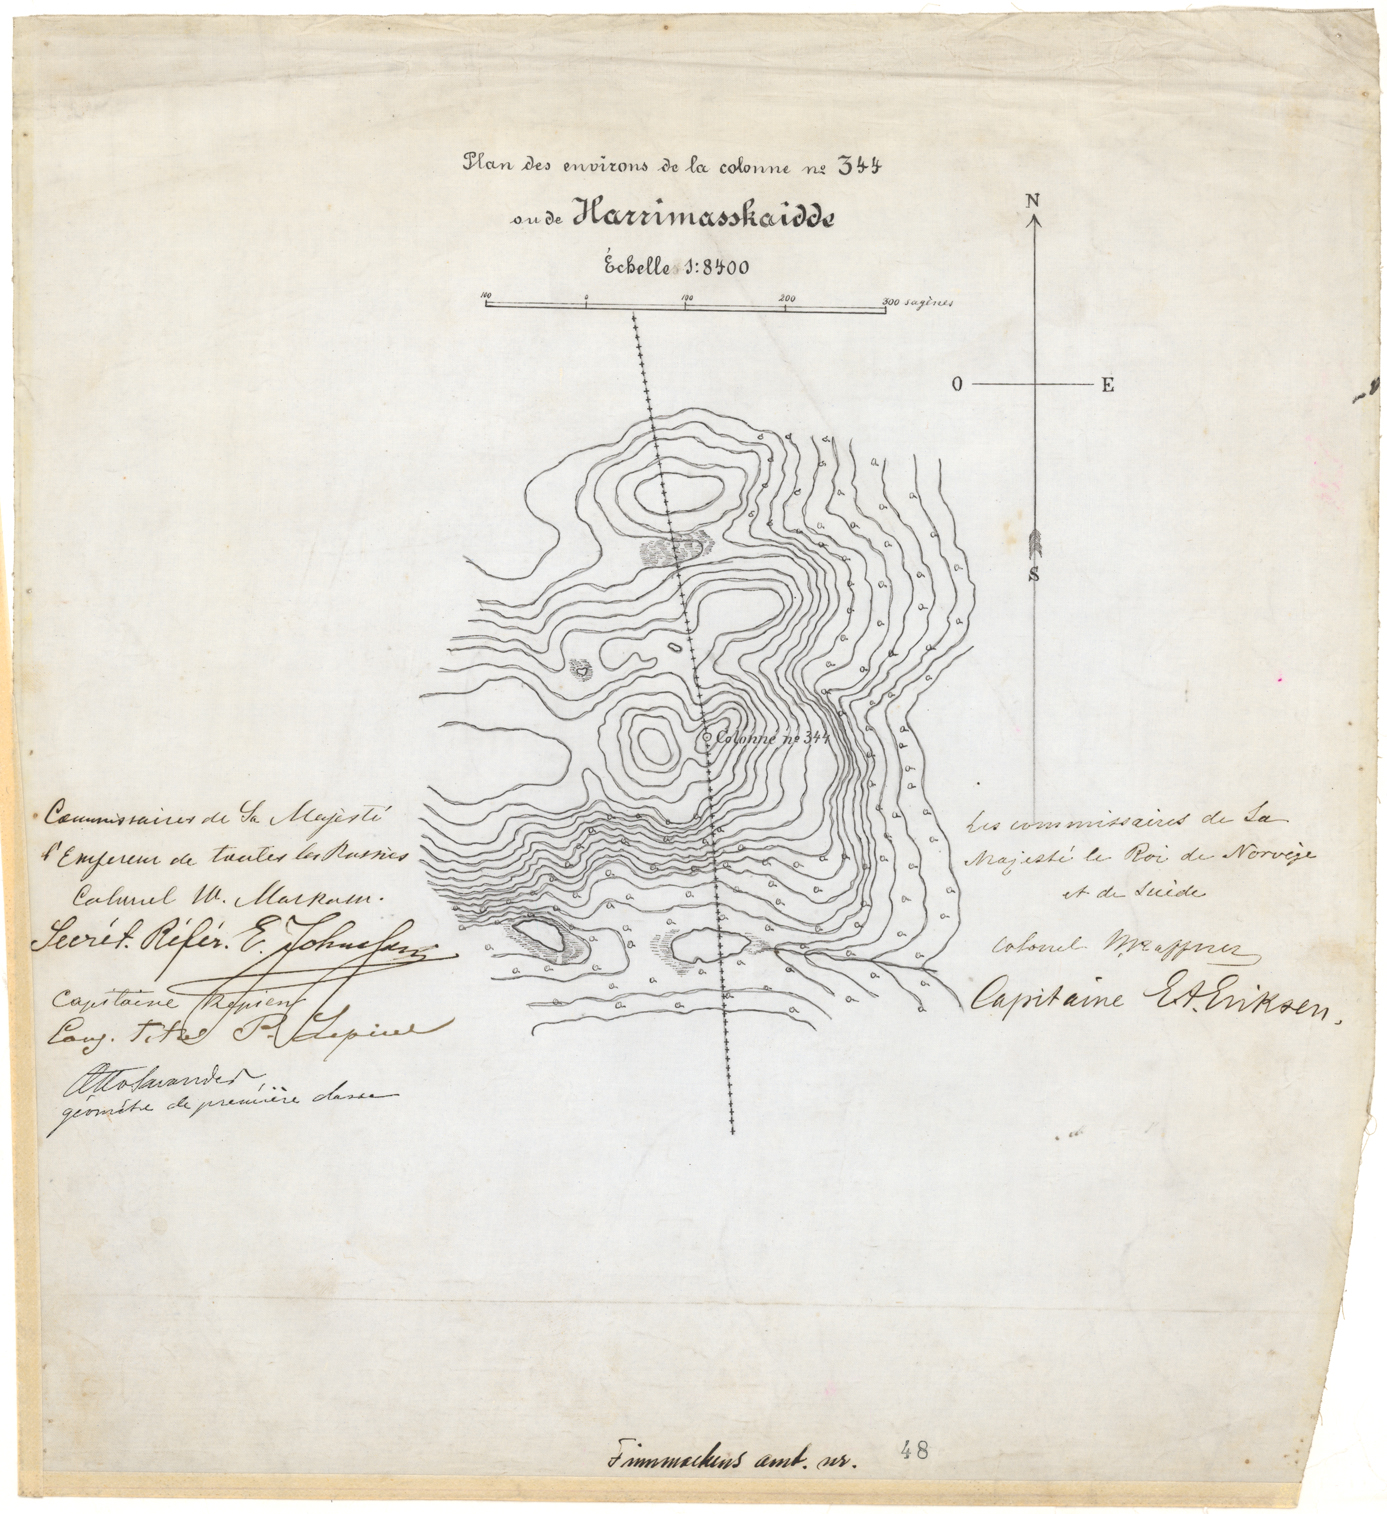 Plan des environs de la colonne nº 344
ou de Harrimasskaidde
Échelle 1:8400
100 0 100 200 300 sagènes
N
O E
S
Colonne nº 344
Commissaires de Sa Majesté
l'Empereur de toutes les Russies
Colonel W.
Secrét. Référ. E.
Capitaine
P.
géomètre de première classe
Les commissaires de Sa
Majesté le Roi de Norvège
et de Suède
Colonel
Capitaine E.A. Eriksen.
Finmarkens amt. nr. 48